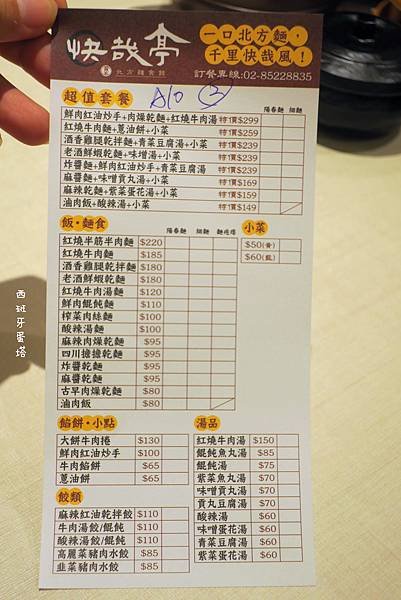 快哉亭
北方麵食館
一口北方麵，
千里快哉風！
訂餐專線:02-85228835
超值套餐
A10 ③
陽春麵 細麵
鮮肉紅油炒手+肉燥乾麵+紅燒牛肉湯 特價$299
紅燒牛肉麵+蔥油餅+小菜 特價$259
酒香雞腿乾拌麵+青菜豆腐湯+小菜 特價$239
老酒鮮蝦乾麵+味增湯+小菜 特價$239
炸醬麵+鮮肉紅油炒手+青菜豆腐湯 特價$239
麻醬麵+味噌貢丸湯+小菜 特價$169
麻辣乾麵+紫菜蛋花湯+小菜 特價$159
滷肉飯+酸辣湯+小菜 特價$149
飯·麵食
陽春麵 細麵 麵疙瘩
紅燒半筋半肉麵 $220
紅燒牛肉麵 $185
酒香雞腿乾拌麵 $180
老酒鮮蝦乾麵 $180
紅燒牛肉湯麵 $120
鮮肉餛飩麵 $110
榨菜肉絲麵 $100
酸辣湯麵 $100
麻辣肉燥乾麵 $95
四川擔擔乾麵 $95
炸醬乾麵 $95
麻醬乾麵 $95
古早肉燥乾麵 $80
滷肉飯 $80
小菜
$50(黃)
$60(藍)
餡餅·小點
大餅牛肉捲 $130
鮮肉紅油炒手 $100
牛肉餡餅 $65
蔥油餅 $65
餃類
麻辣紅油乾拌餃 $110
牛肉湯餃/餛飩 $110
酸辣湯餃/餛飩 $110
高麗菜豬肉水餃 $85
韭菜豬肉水餃 $85
湯品
紅燒牛肉湯 $150
餛飩魚丸湯 $85
餛飩湯 $75
紫菜魚丸湯 $70
味噌貢丸湯 $70
貢丸豆腐湯 $70
酸辣湯 $60
味噌蛋花湯 $60
青菜豆腐湯 $60
紫菜蛋花湯 $60
西班牙蛋塔